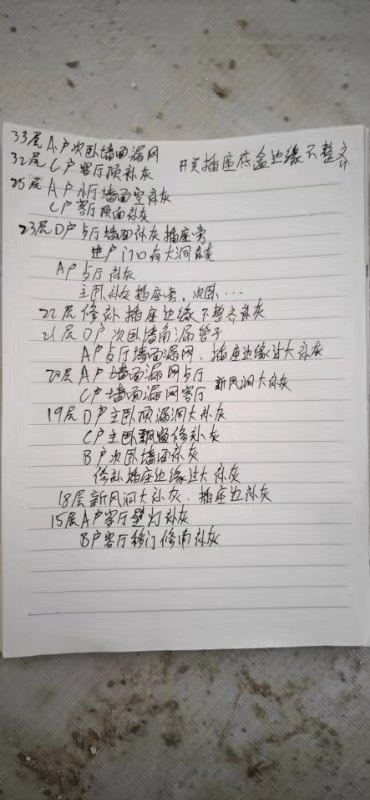 33层 A户次卧墙面漏网
32层 C户客厅顶补灰 开关插座底盒边缘不整齐
25层 A户小厅墙面空补灰
C户客厅顶面补灰
23层 D户与厅墙面补灰插座旁
进户门口有大洞补灰
A户与厅补灰
主卧补灰插座旁,次卧…
22层 修补插座边缘不整齐补灰
21层 D户次卧墙角漏管子
A户与厅墙面漏网、插座边缘过大补灰
20层 A户墙面漏网与厅
C户墙面漏网客厅 新风洞大补灰
19层 D户主卧顶漏洞大补灰
C户主卧飘窗修补灰
B户次卧墙面补灰
修补插座边缘过大补灰
18层 新风洞大补灰、插座边补灰
15层 A户客厅壁灯补灰
B户客厅移门修角补灰